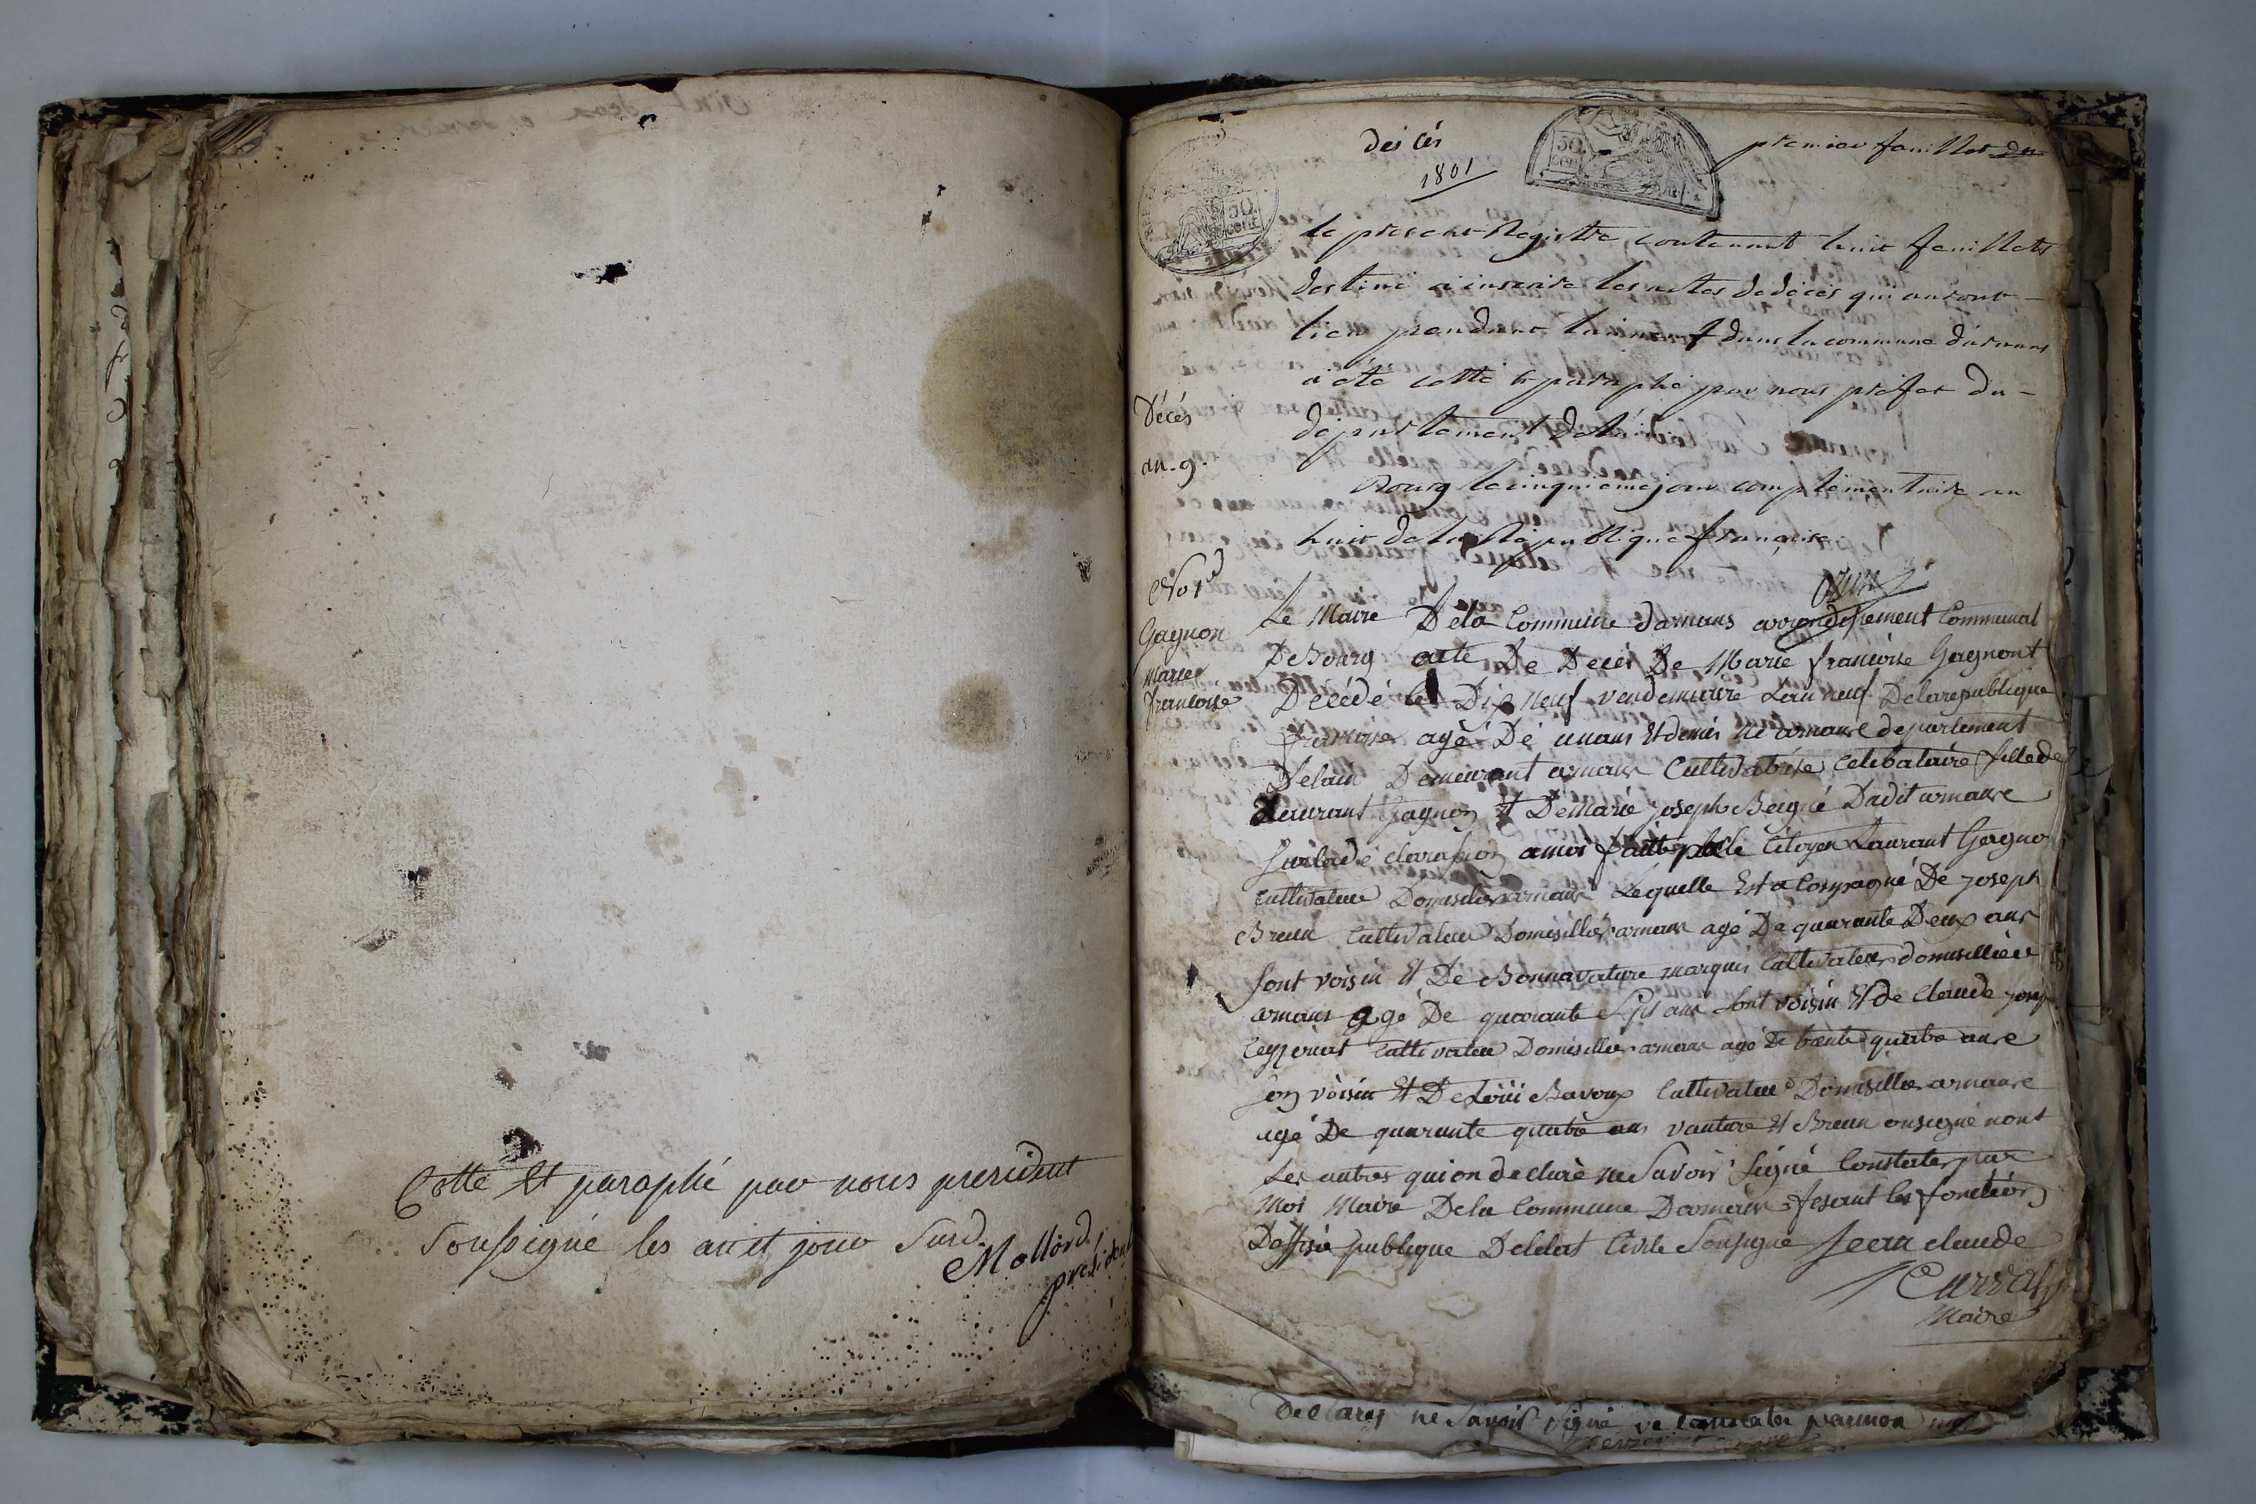 Cotté Et paraphé par nous president
Soussigné les an et jour Susd.
Mollard
president
décès
1801
premier feuillet du
50
cent
le présent Registre, contenant huit feuillets
destiné a inscrire les actes de décès qui auront
lieu pendant l'an neuf dans la commune d'arnans
a été cotté & paraphé par nous préfet du
département de l'ain
Bourg le cinquieme jour complémentaire an
huit de la République française
Décés
an. 9.
No 1er
Gagnon
marie
francoise
Le Maire De la Commune darnans arrondisement Communal
De Bourg acte De Decés De Marie francoise Gagnont
Décédé le Dix Neuf vandemiaire Lan neuf De la republique
francoise agé De ans Et demis né arnans departement
Delain Demeurant arnans Cultivatrise Celibataire fille de
Laurant Gagnon Et De Marie joseph Beigné Dadit arnans
Sur la dé clarasion amoi faitte par le Citoyen Laurant Gagno
cultivateur Domisilié arnans Lequelle Est a Compagné De joseph
Breun Cultivateur Domisillié arnans agé De quarante Deux ans
sont voisin Et De Bonnavature marquis Cultivateur domisillié
arnans agé De quarante Sept ans sont voisin Et de Claude josep
Ceyzeriat Cultivateur Domisillié arnans agé De trente quatre ans
son voisin Et De Loüi Bavoux Cultivateur Domisillié arnans
agé De quarante quatre ans vanture Et Breun onsigné nont
Les autres qui on declaré ne Savoir signé Constater par
Moi Maire De la Commune Darnans fesant les fonction
Doffisié publique De létat Civile Sousigné Jean claude
Maire
Declarez ne Savoir signé